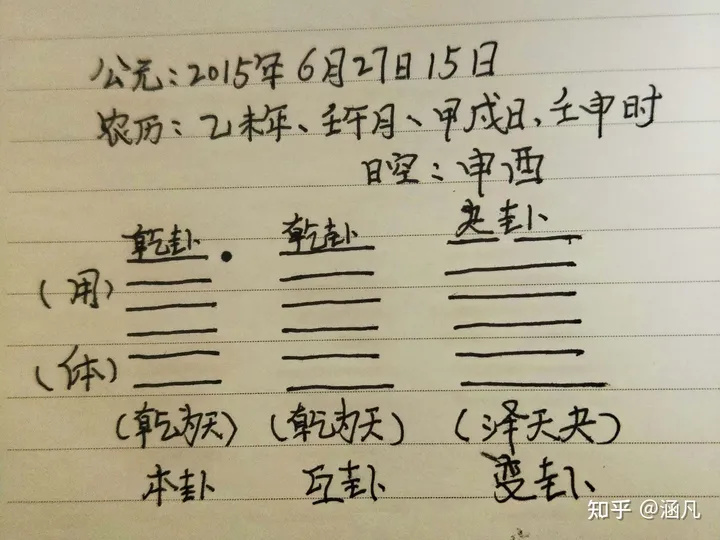 公元：2015年6月27日15日
农历：乙未年、壬午月、甲戌日、壬申时
日空：申酉
乾卦 乾卦 夬卦
（用）
（体）
（乾为天）（乾为天）（泽天夬）
本卦 互卦 变卦
知乎 @涵凡